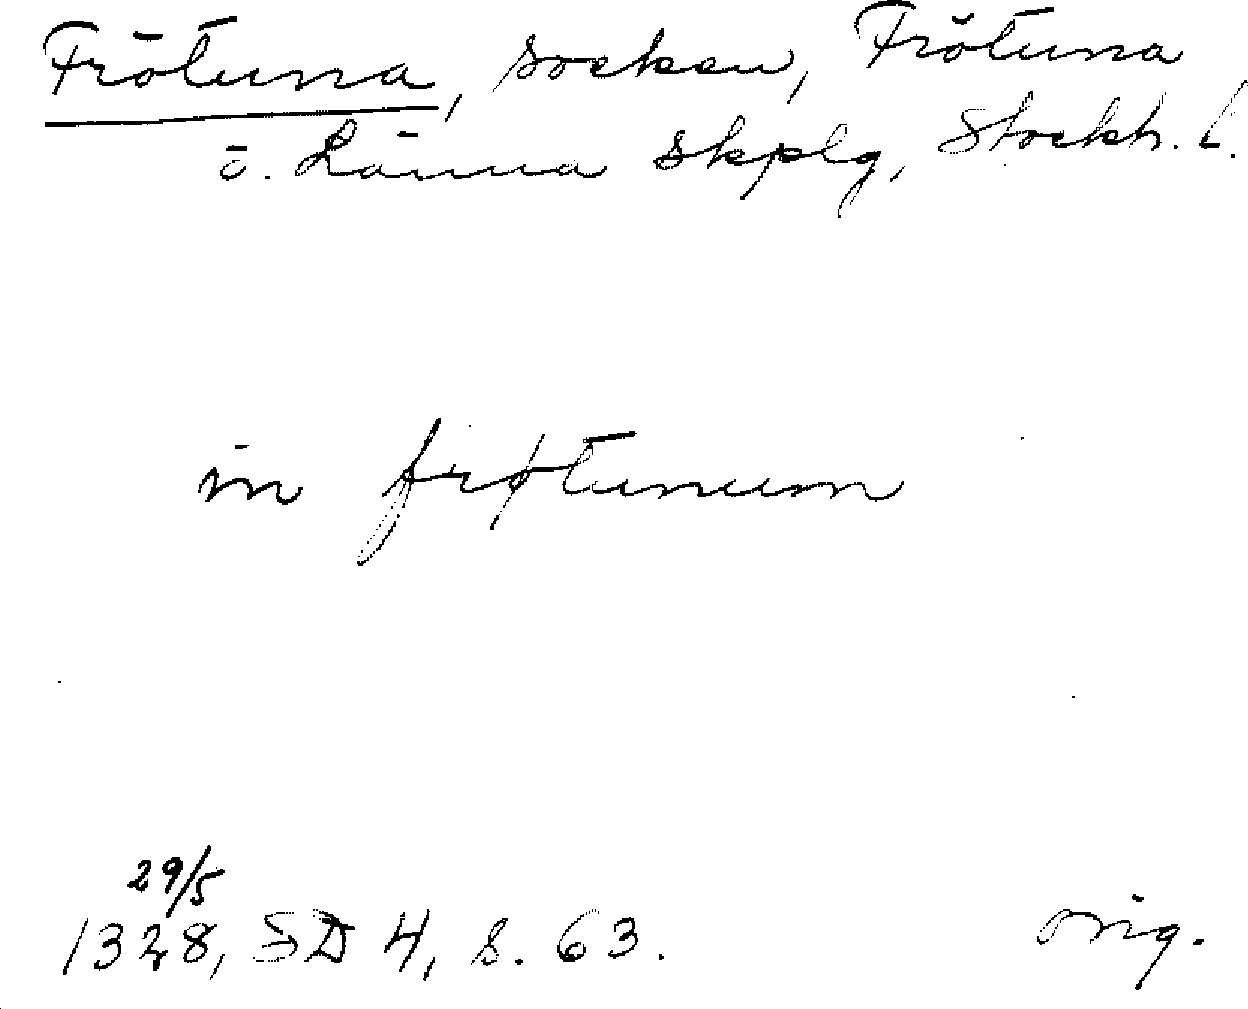 Frötuna, socken, Frötuna
o. Länna skplg, Stockh. l.
in frøtunum
29/5
1328, SD 4, s. 63.
orig.